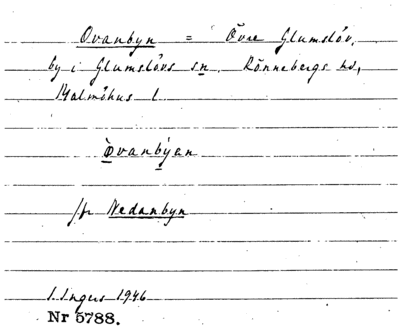 Ovanbyn = Övre Glumslöv,
by i Glumslövs sn. Rönnebergs hd,
Malmöhus l
Ovanbyen
jfr Nedanbyn
I. Ingers 1946
Nr 5788.